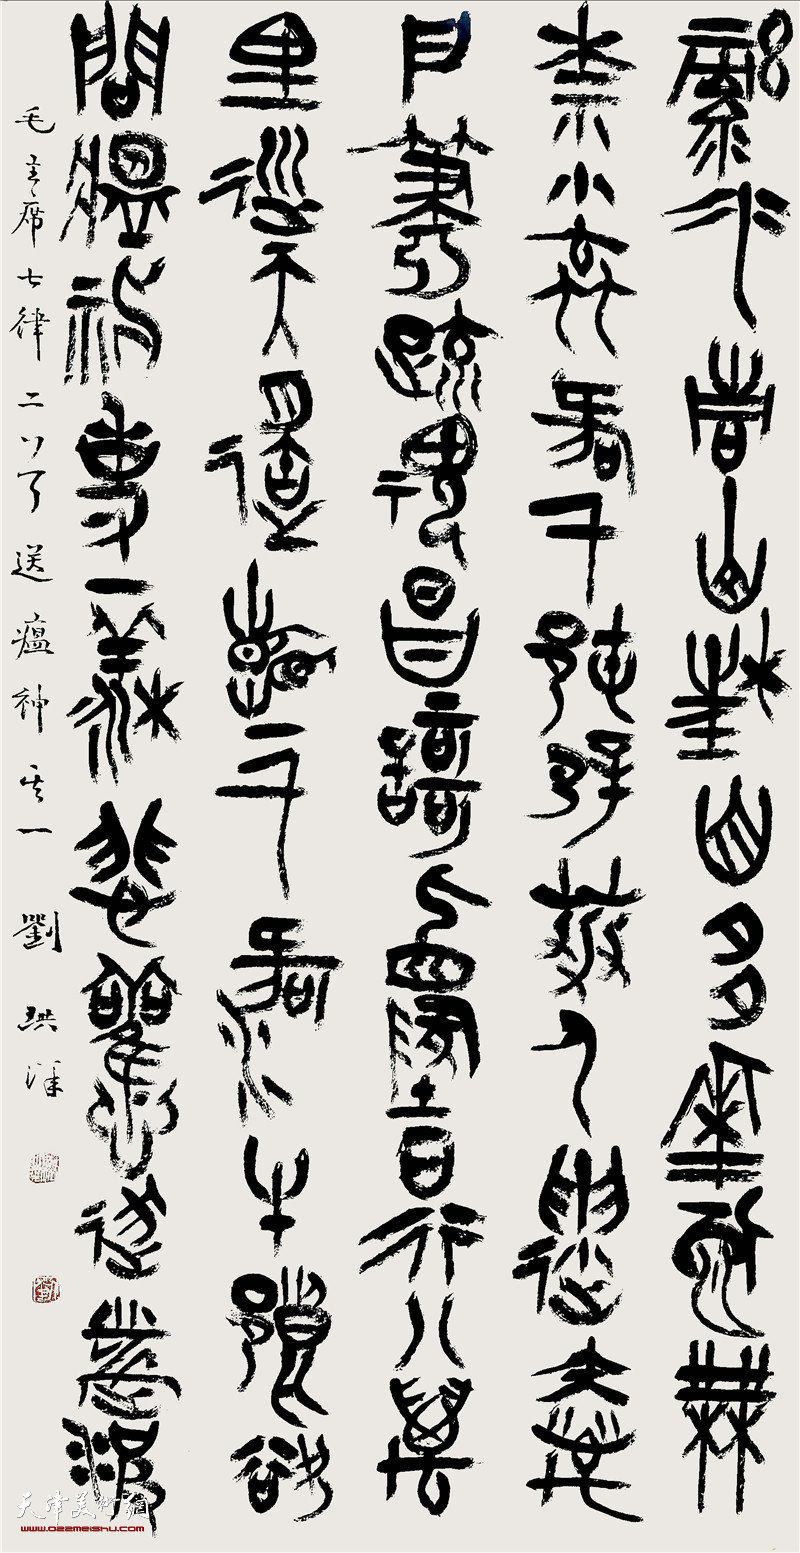 綠水青山枉自多華佗無
奈小蟲何千邨薜荔人遺矢萬
戶蕭疏鬼唱歌坐地日行八萬
里巡天遙看一千河牛郎欲
問瘟神事一樣悲歡逐逝波
毛主席七律二首送瘟神其一 劉洪洋
天津美術網
www.022meishu.com